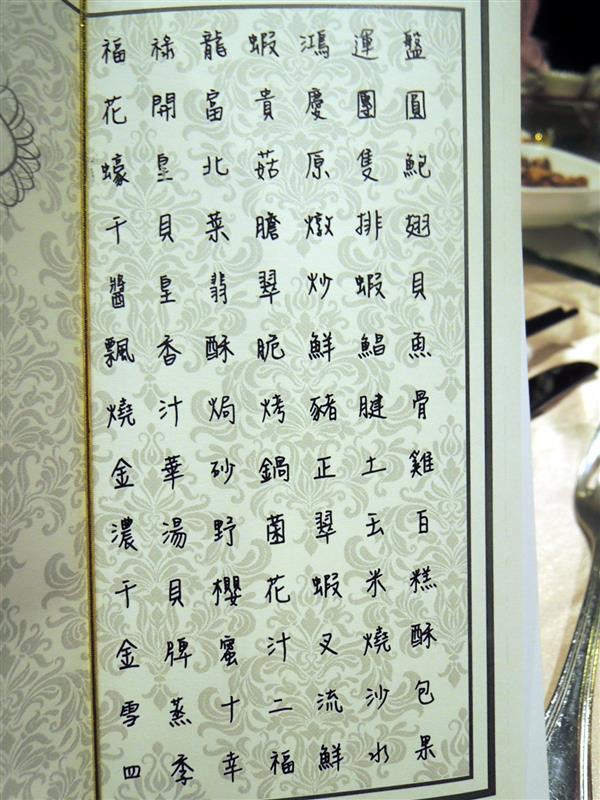 福祿龍蝦鴻運盤
花開富貴慶團圓
蠔皇北菇原隻鮑
干貝菜膽燉排翅
醬皇翡翠炒蝦貝
飄香酥脆鮮鯧魚
燒汁焗烤豬腱骨
金華砂鍋正土雞
濃湯野菌翠玉百
干貝櫻花蝦米糕
金牌蜜汁叉燒酥
雪蒸十二流沙包
四季幸福鮮水果